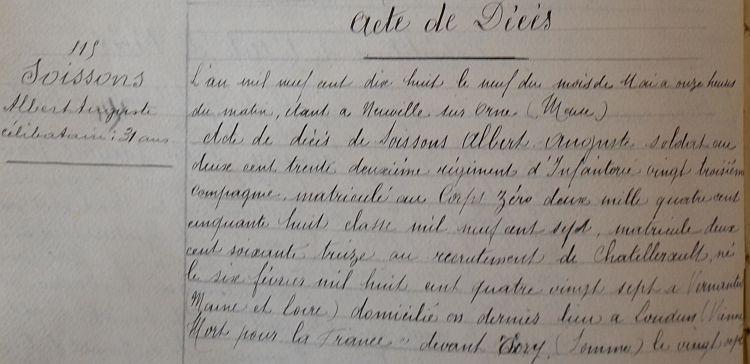 Acte de Décès
115
Soissons
Albert Auguste
célibataire : 31 ans
L'an mil neuf cent dix huit le neuf du mois de Mai a onze heures
du matin, étant a Neuville sur Orne (Meuse)
Acte de décès de Soissons Albert Auguste soldat au
deux cent trente deuxième régiment d'Infanterie vingt troisième
Compagnie, matriculé au Corps zéro deux mille quatre cent
cinquante huit classe mil neuf cent sept, matricule deux
cent soixante treize au recrutement de Chatellerault, né
le six février mil huit cent quatre vingt sept a Vernantes
Maine et Loire) domicilié en dernier lieu a Loudun (Vienne
Mort pour la France" devant (Somme) le vingt